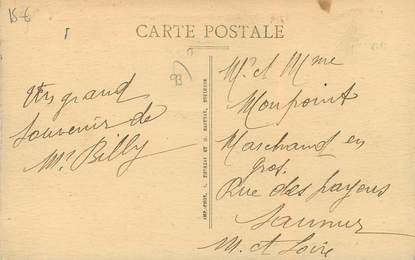 15-6
CARTE POSTALE
93
Un grand
Souvenir de
Mr Billy
Mr et Mme
Monpoint
Marchand en
gros.
Rue des payens
Saumur
M. et Loire